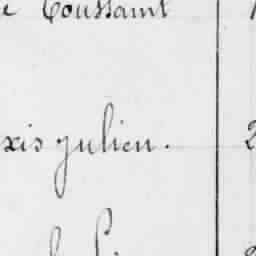 e Toussaint
xis julien. 2